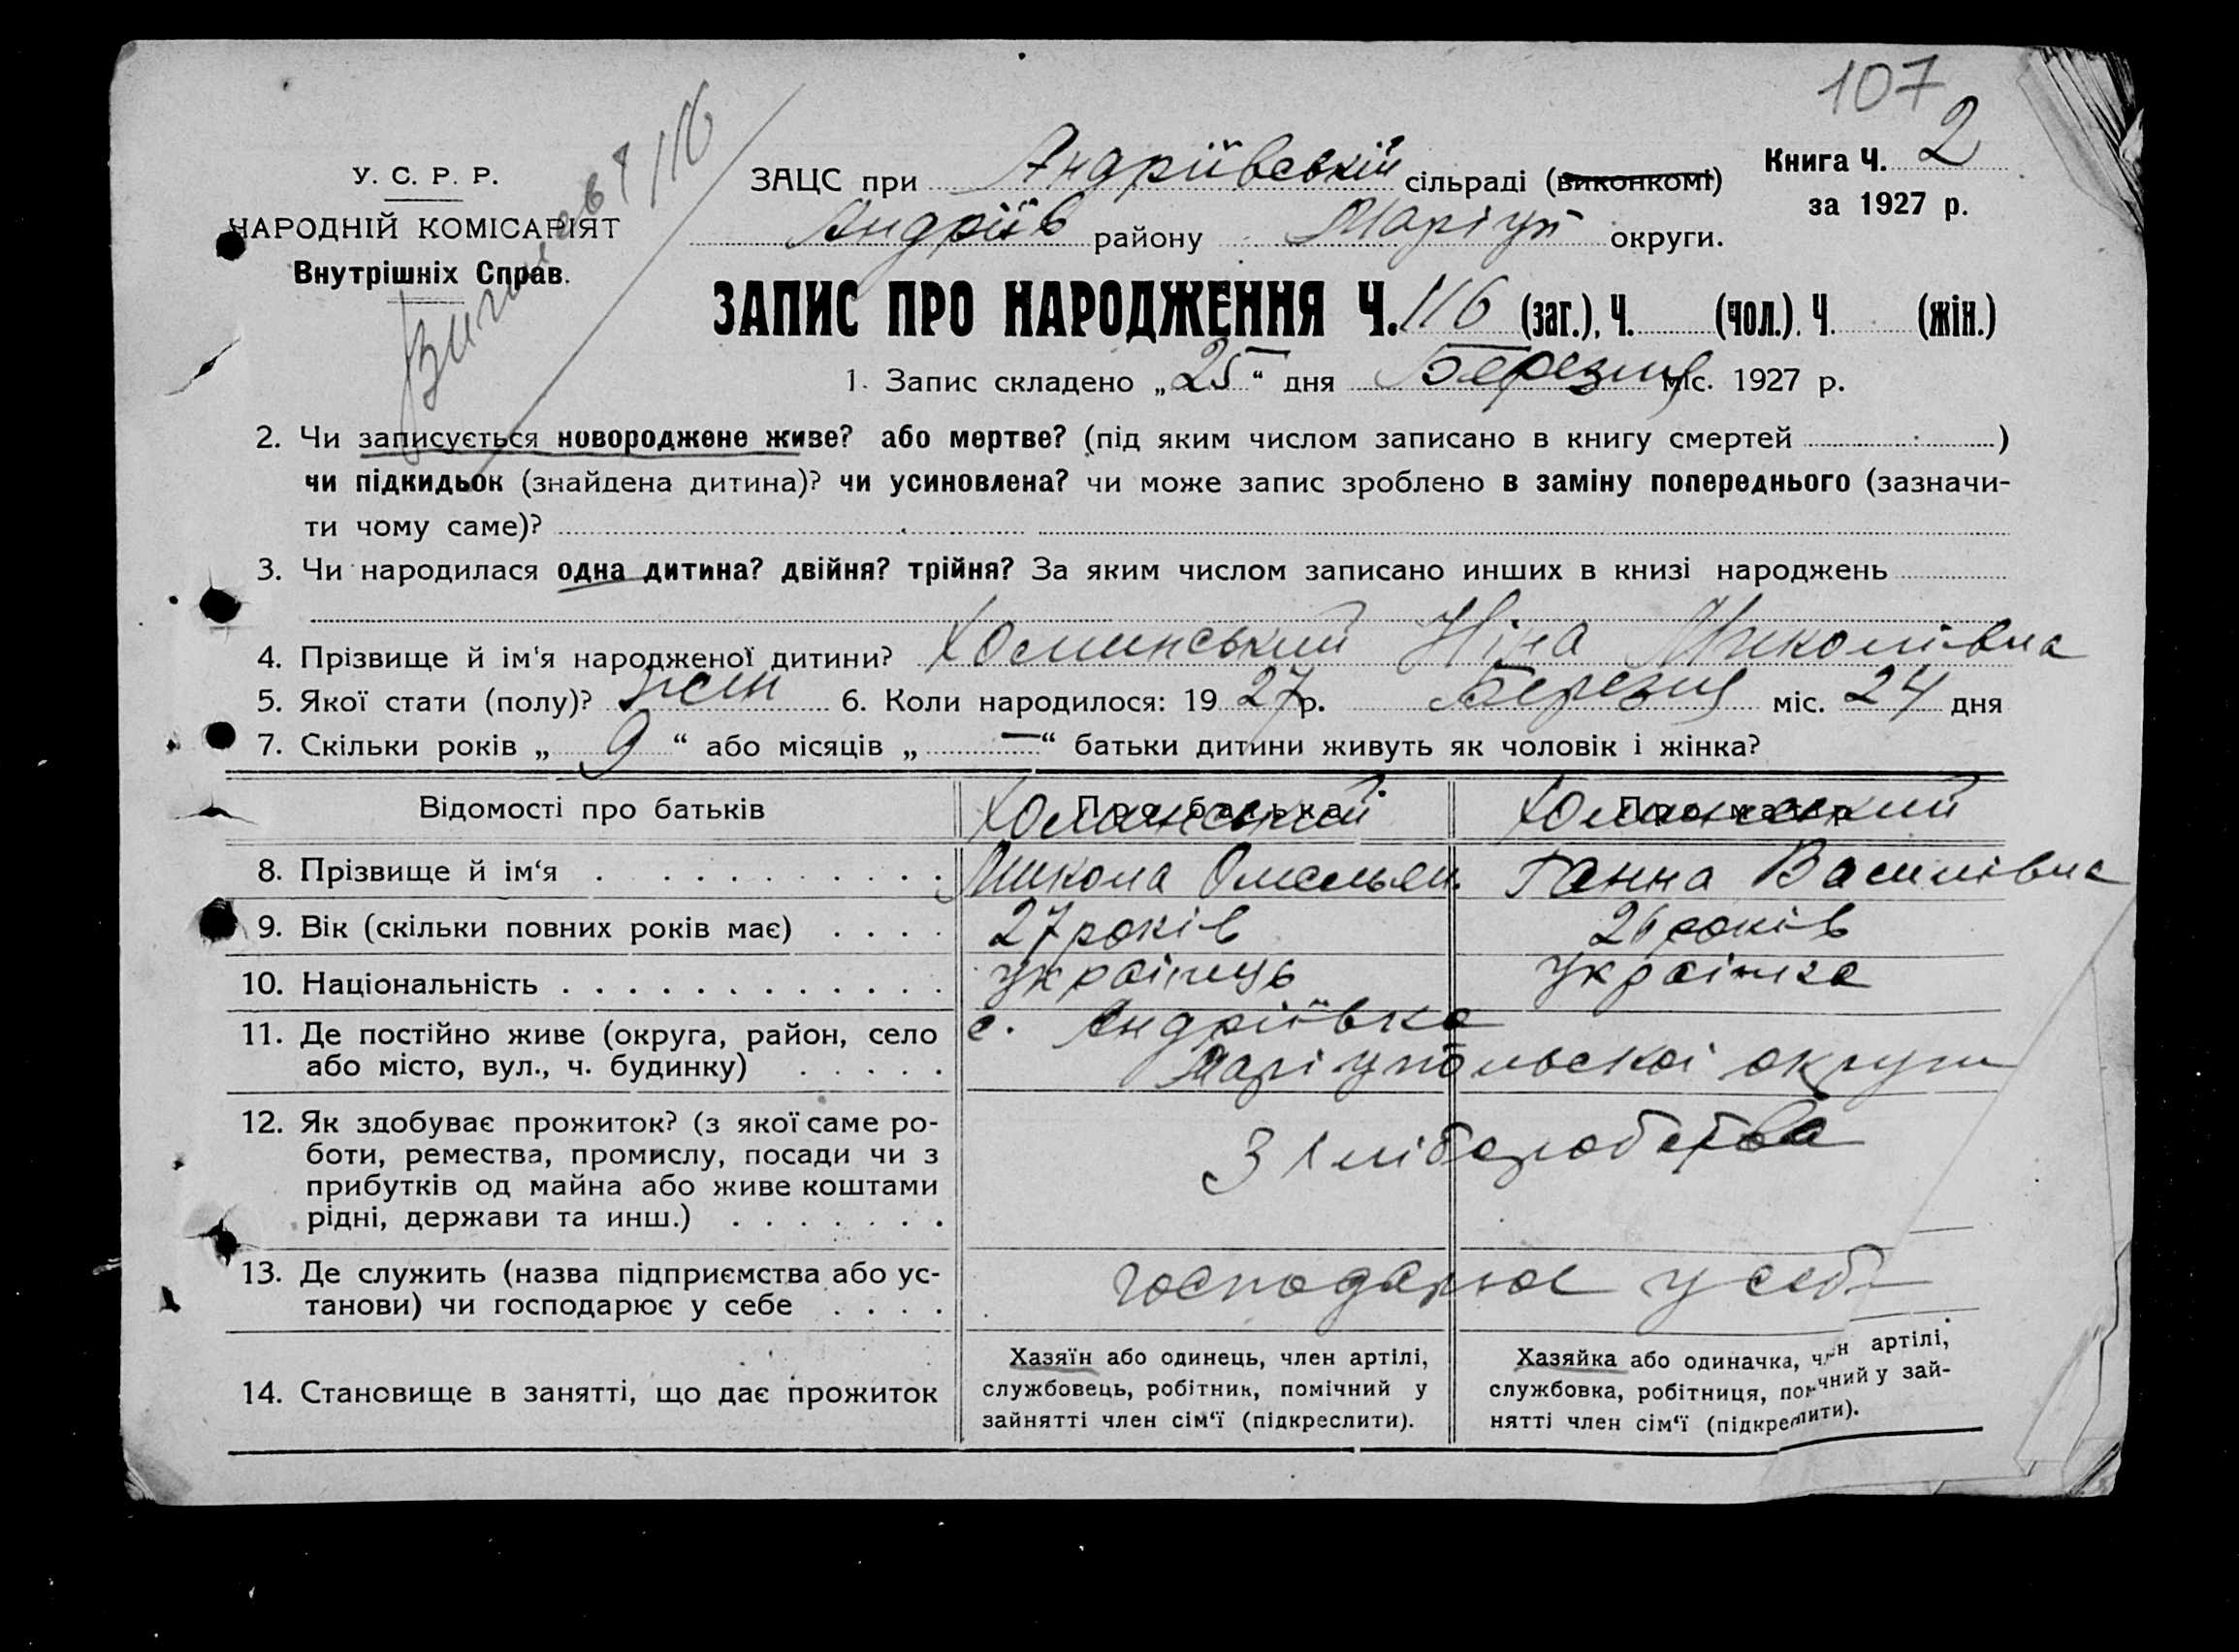 107
У. С. Р. Р.
НАРОДНІЙ КОМІСАРІЯТ
Внутрішніх Справ.
ЗАЦС при Андріївській сільраді (виконкомі)
Андріїв району Маріуп округи.
Книга Ч. 2
за 1927 р.
ЗАПИС ПРО НАРОДЖЕННЯ Ч. 116 (заг.), Ч. (чол.). Ч. (жін.)
1. Запис складено „25“ дня Березня міс. 1927 р.
2. Чи записується новороджене живе? або мертве? (під яким числом записано в книгу смертей )
чи підкидьок (знайдена дитина)? чи усиновлена? чи може запис зроблено в заміну попереднього (зазначи-
ти чому саме)?
3. Чи народилася одна дитина? двійня? трійня? За яким числом записано инших в книзі народжень
4. Прізвище й ім'я народженої дитини? Хоминський Ніна Миколівна
5. Якої стати (полу)? жін 6. Коли народилося: 1927 р. Березня міс. 24 дня
7. Скільки років „9“ або місяців „—“ батьки дитини живуть як чоловік і жінка?
Відомості про батьків Про батька Про матір
Хоминський Хоминський
8. Прізвище й ім'я Микола Омельян. Ганна Василівна
9. Вік (скільки повних років має) 27 років 26 років
10. Національність українець українка
11. Де постійно живе (округа, район, село с. Андріївка
або місто, вул., ч. будинку) Маріупольскої округи
12. Як здобуває прожиток? (з якої саме ро-
боти, ремества, промислу, посади чи з З хліборобства
прибутків од майна або живе коштами
рідні, держави та инш.)
13. Де служить (назва підприємства або ус- господарює у себе
танови) чи господарює у себе
14. Становище в занятті, що дає прожиток
Хазяїн або одинець, член артілі,
службовець, робітник, помічний у
зайнятті член сім'ї (підкреслити).
Хазяйка або одиначка, член артілі,
службовка, робітниця, помічний у зай-
нятті член сім'ї (підкреслити).